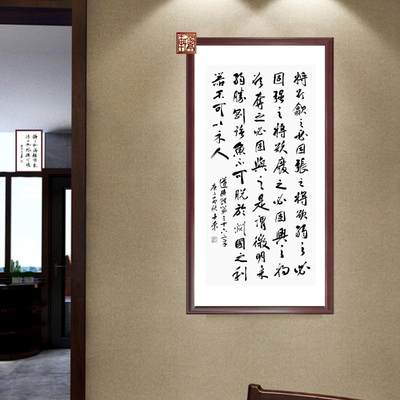 将欲歙之必固張之将欲弱之必
固强之将欲廢之必固興之将
欲奪之必固與之是謂微明柔
弱勝剛强魚不可脱於淵國之利
器不可以示人
道德經第三十六章